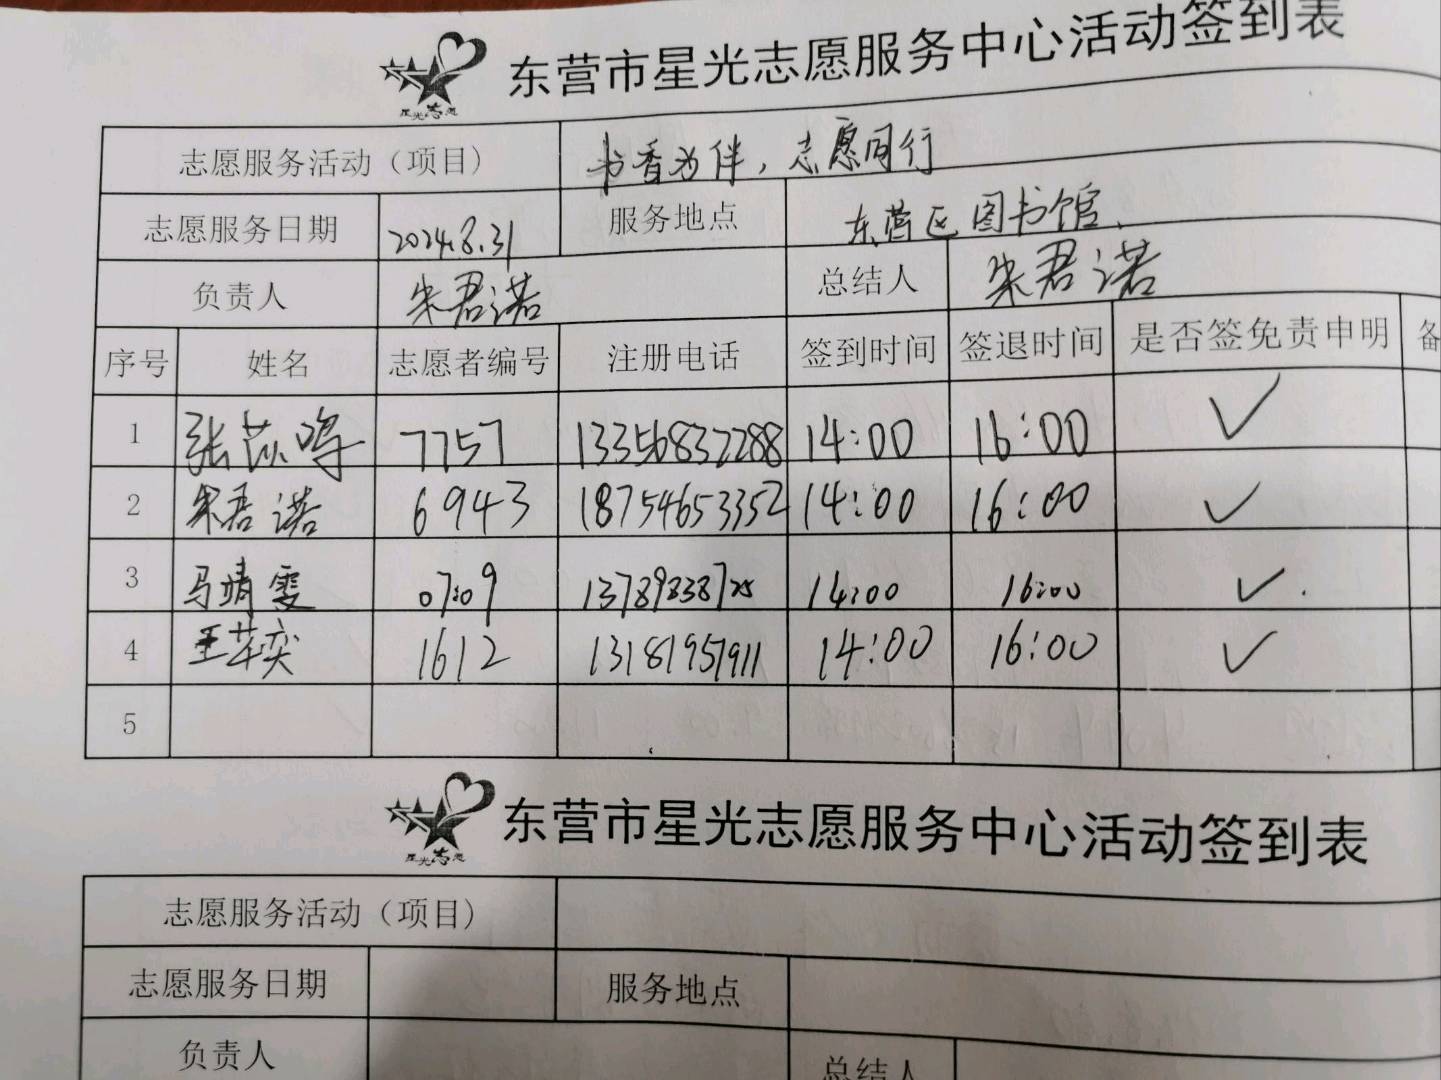 东营市星光志愿服务中心活动签到表
星光志愿
志愿服务活动（项目） 书香为伴，志愿同行
志愿服务日期 2024.8.31 服务地点 东营区图书馆
负责人 朱君诺 总结人 朱君诺
序号 姓名 志愿者编号 注册电话 签到时间 签退时间 是否签免责申明 备
1 7757 13356832288 14:00 16:00 ✓
2 朱君诺 6943 18754653352 14:00 16:00 ✓
3 马靖雯 0709 14:00 16:00 ✓
4 1612 13181957911 14:00 16:00 ✓
5
东营市星光志愿服务中心活动签到表
星光志愿
志愿服务活动（项目）
志愿服务日期 服务地点
负责人 总结人